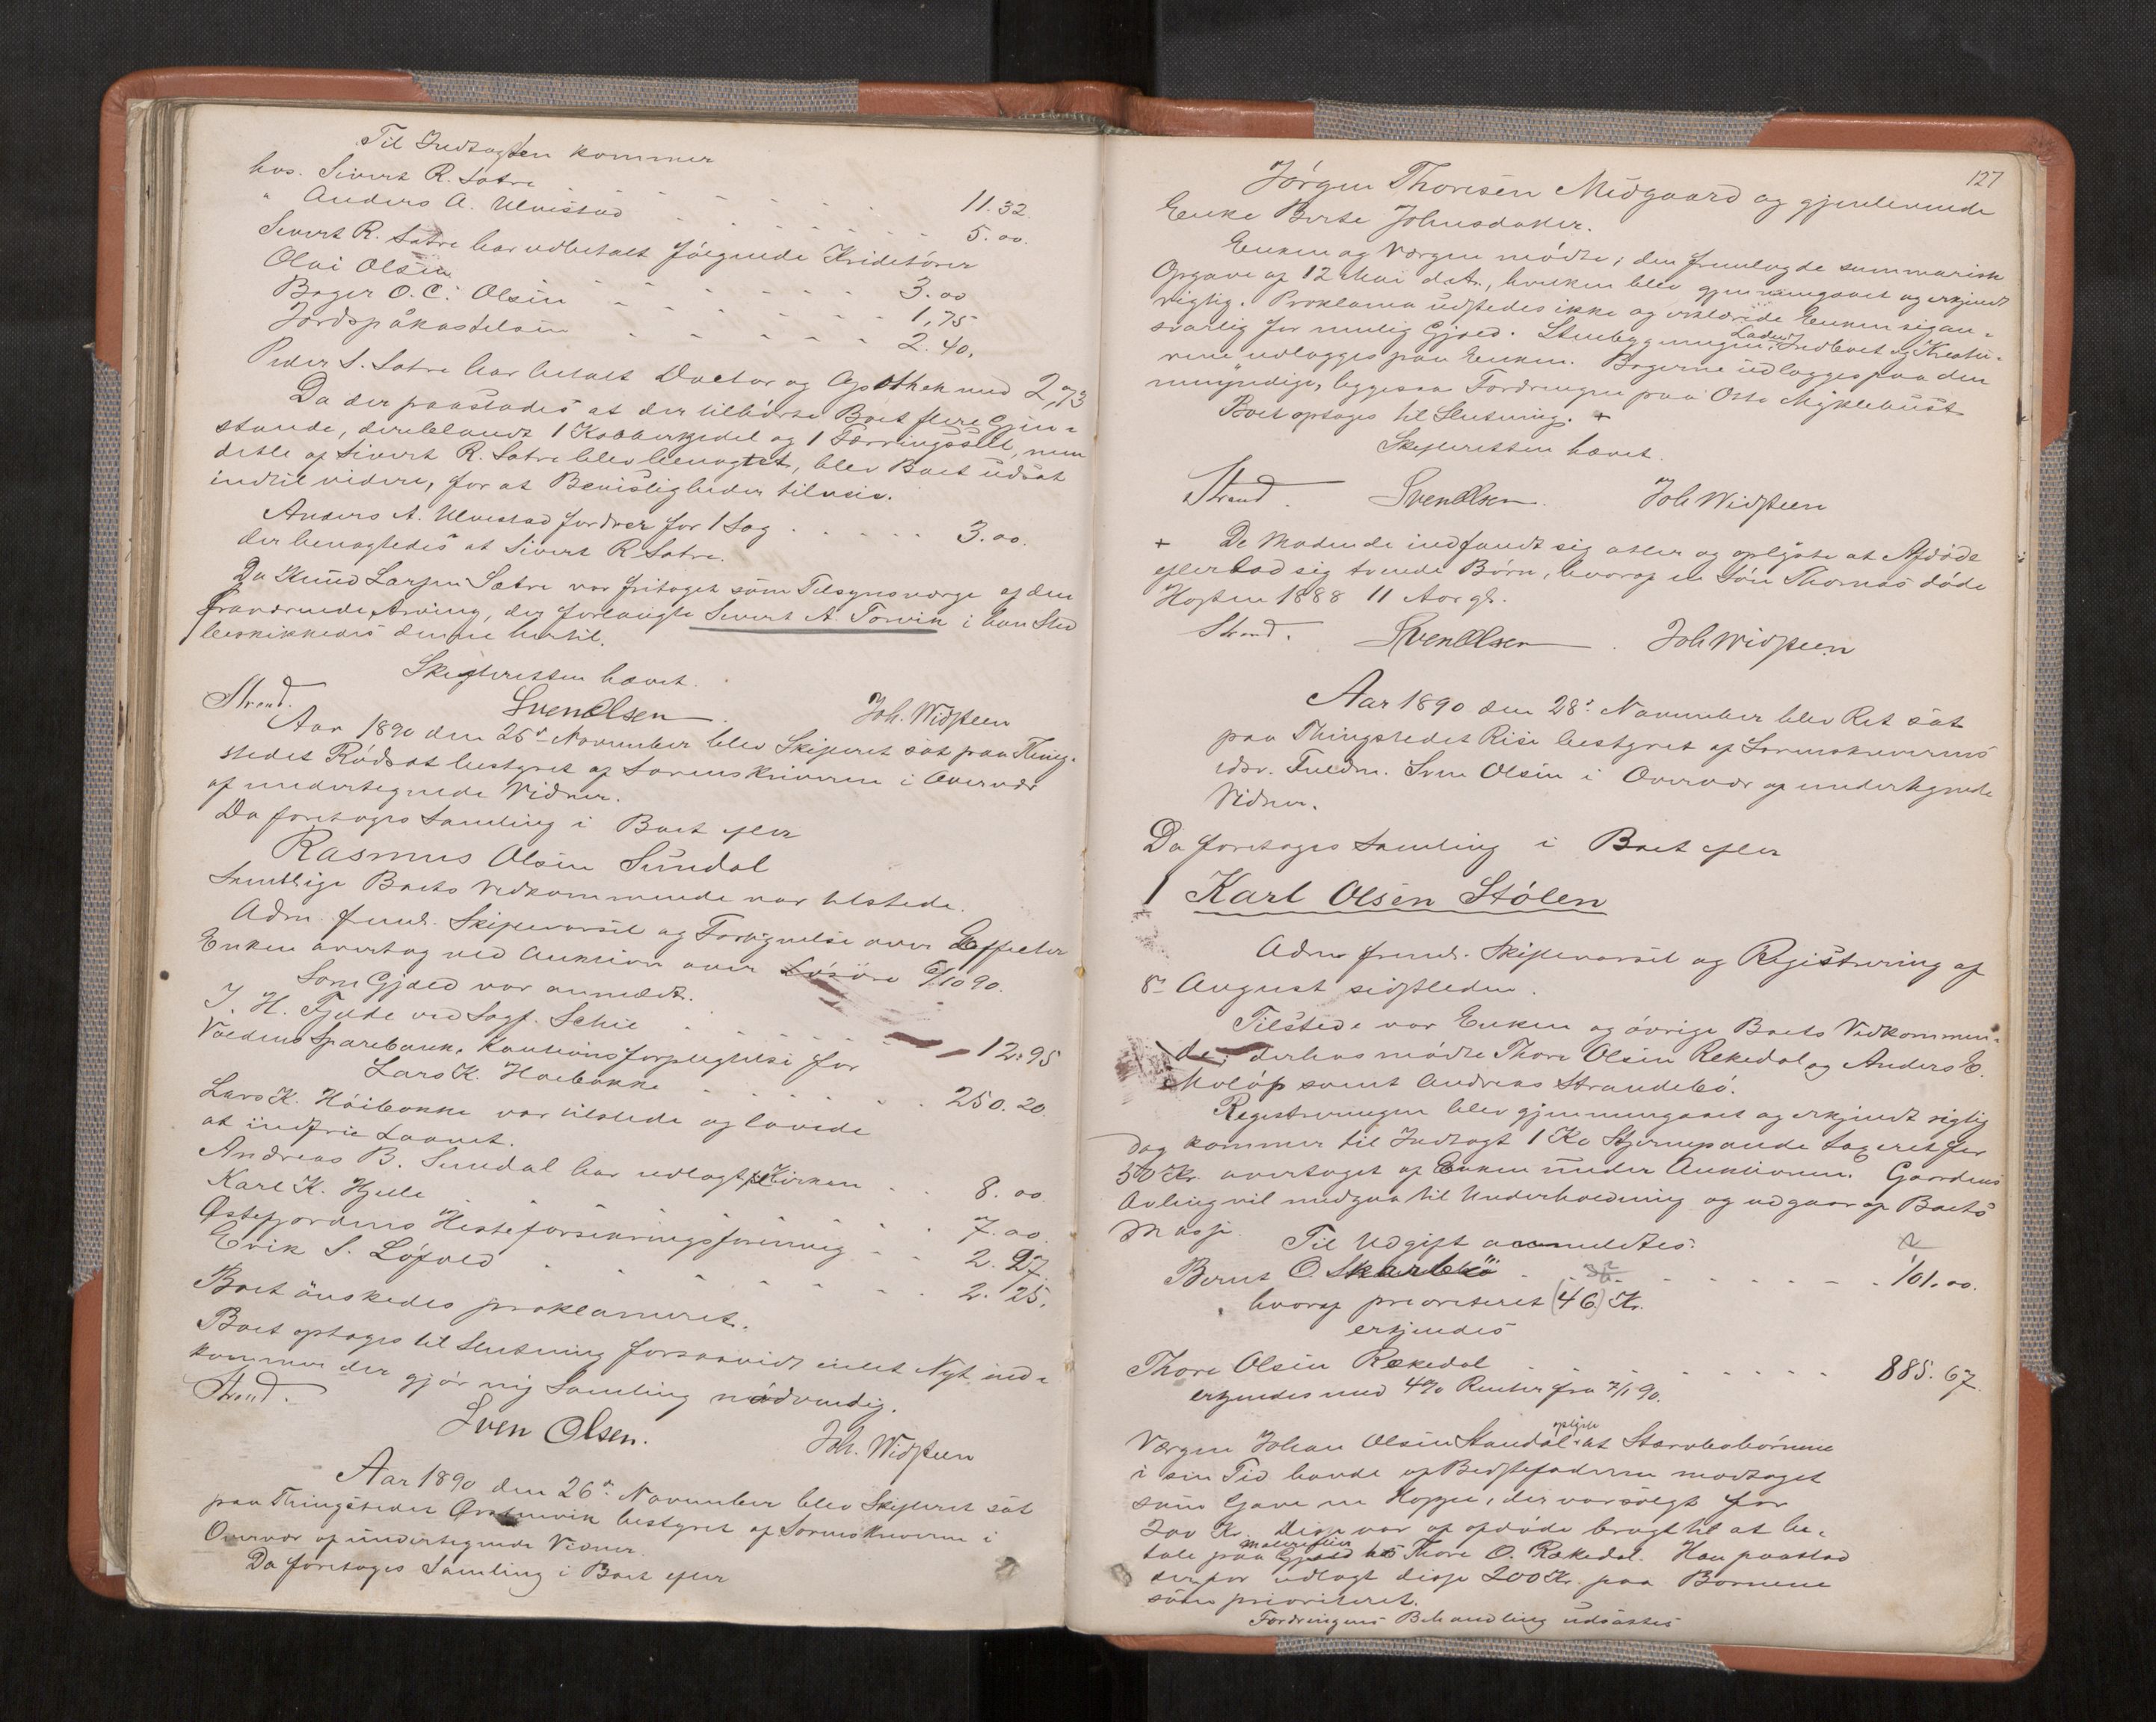 Til Indtægten kommer
hos. Sivert R. Satre 11.32.
" Anders A. Ulvestad 5.00.
Sivert R. Satre har udbetalt følgende Kreditorer
Olai Olsen 3.00
Bager O. C. Olsen 1,75
Jordspåkastelsen 2.40.
Peder S. Satre har betalt Doctor og Apothek med 2,73
Da der paastodes at der tilhørte Boet flere Gjen-
stande, deriblandt 1 Kobberkjedel og 1 men
dette af Sivert R. Satre blev benægtet, blev Boet udsat
indtil videre, for at Bevisligheder tilveie.
Anders A. Ulvestad fordrer for 1 Sag 3.00.
der benægtedes at Sivert R Satre.
Da Knud Larsen Sætre var fritaget som Tilsynsværge af den
fraværende Arving, der forlangte Sivert A. Torvik i hans Sted
beskikkedes denne hertil.
Skifteretten hævet.
Strand. Sven Olsen. Joh. Widsteen
Aar 1890 den 25de November blev Skifteret sat paa Thing-
stedet Rødsæt bestyret af Sorenskriveren i Overvær
af undertegnede Vidner.
Da foretoges Samling i Boet efter
Rasmus Olsen Sundal
Samtlige Boets Vedkommende var tilstede.
Adm. freml. Skiftevarsel og Fortegnelse over Effecter
Enken overtog ved Auktion over Løsøre 6/10 90.
Som Gjæld var anmeldt.
I. H. Fjelde ved Sagf. Schie 12.95
Voldens Sparebank, Kautionsforpligtelse for
Lars K. Høibakke 250.20.
Lars K. Høibakke var tilstede og lovede
at indfrie Laanet.
Andreas B. Sundal har udlagt til Kirken 8.00.
Karl K. Hjelle 7.00.
Østefjordens Hesteforsikringsforening 2.27.
Erik S. Løfold 2.25.
Boet önskedes proklameret.
Boet optages til Slutning forsaavidt intet Nyt ind-
kommer der gjør ny Samling nødvendig.
Strand. Sven Olsen. Joh. Widsteen
Aar 1890 den 26de November blev Skifteret sat
paa Thingstedet Ørstenvik bestyret af Sorenskriveren i
Overvær af undertegnede Vidner.
Da foretoges Samling i Boet efter
127
Jørgen Thoresen Midgaard og gjenlevende
Enke Berte Johnsdatter.
Enken og Værgen mødte; den fremlagde summarisk
Opgave af 12 Mai d.A., hvilken blev gjennemgaaet og erkjendt
rigtig. Proklama udstedes ikke og erklærede Enken sig an-
svarlig for mulig Gjæld. Stuebygningen, Laden, Indboet og Kreatu-
rene udlægges paa Enken. Bøgerne udlægges paa den
umyndige, ligesaa Fordringen paa Otto Myklebust
Boet optages til Slutning. +
Skifteretten hævet.
Strand. Sven Olsen. Joh Widsteen
+ De Mødende indfandt sig atter og oplyste at Afdøde
efterlod sig tvende Børn, hvoraf en Søn Thomas døde
Høsten 1888 11 Aar gl.
Strand. Sven Olsen. Joh Widsteen
Aar 1890 den 28de November blev Ret sat
paa Thingstedet Rise bestyret af Sorenskriverens
edsv. Fuldm. Sven Olsen i Overvær af undertegnede
Vidner.
Da foretoges Samling i Boet efter
1 Karl Olsen Stølen
Adm freml. Skiftevarsel og Registrering af
8de August sidstleden.
Tilstede var Enken og øvrige Boets Vedkommen-
de; derhos mødte Thore Olsen Rekedal og Anders E.
Moløp samt Andreas Strandebø.
Registreringen blev gjennemgaaet og erkjendt rigtig
dog kommer til Indtægt 1 taxeret for
50 Kr. overtaget af Enken under Auktionen. Gaardens
Avling vil medgaa til Underholdning og udgaar af Boets
Masse.
Til Udgift anmeldtes:
Bernt O. Skarbø 101.00.
hvoraf prioriteret (46) Kr.
erkjendes
Thore Olsen Rekedal 885.67.
erkjendes med 4% Renter fra 7/1 90.
Værgen Johan Olsen Standal oplyste at Stervbobørnene
i sin Tid havde af Bedstefaderen modtaget
som Gave en Hoppe, der var solgt for
200 Kr. Disse var af afdøde brugt til at be-
tale paa Gjæld hos Thore O. Rekedal. Han paastod
derfor udlagt disse 200 Kr. paa Børnene
som prioriteret.
Fordringens Behandling udsattes